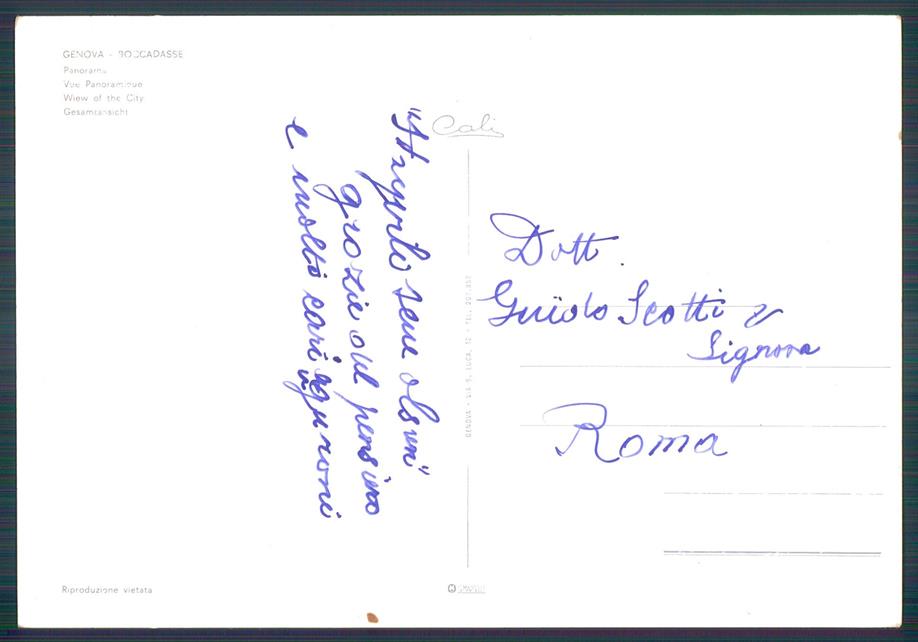 GENOVA - BOCCADASSE
Panorama
Vue Panoramique
Wiew of the City
Gesamtansicht
Cali
grazie del pensiero
e molti cari auguroni
Dott.
Guido Scotti e
Signora
Roma
GENOVA - VIA S. LUCA, 12 - TEL.
Riproduzione vietata